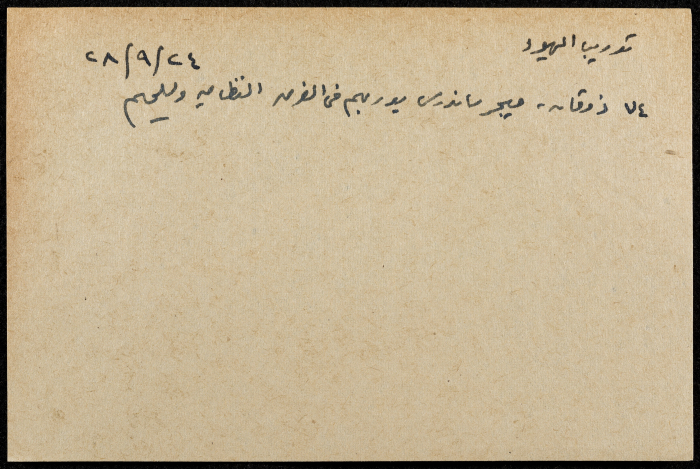 تدريب اليهود
٢٨/٩/٢٤
٧٤ ذوقان - ميجر ساندرس يدربهم في الفرق النظاميه وتسليحهم